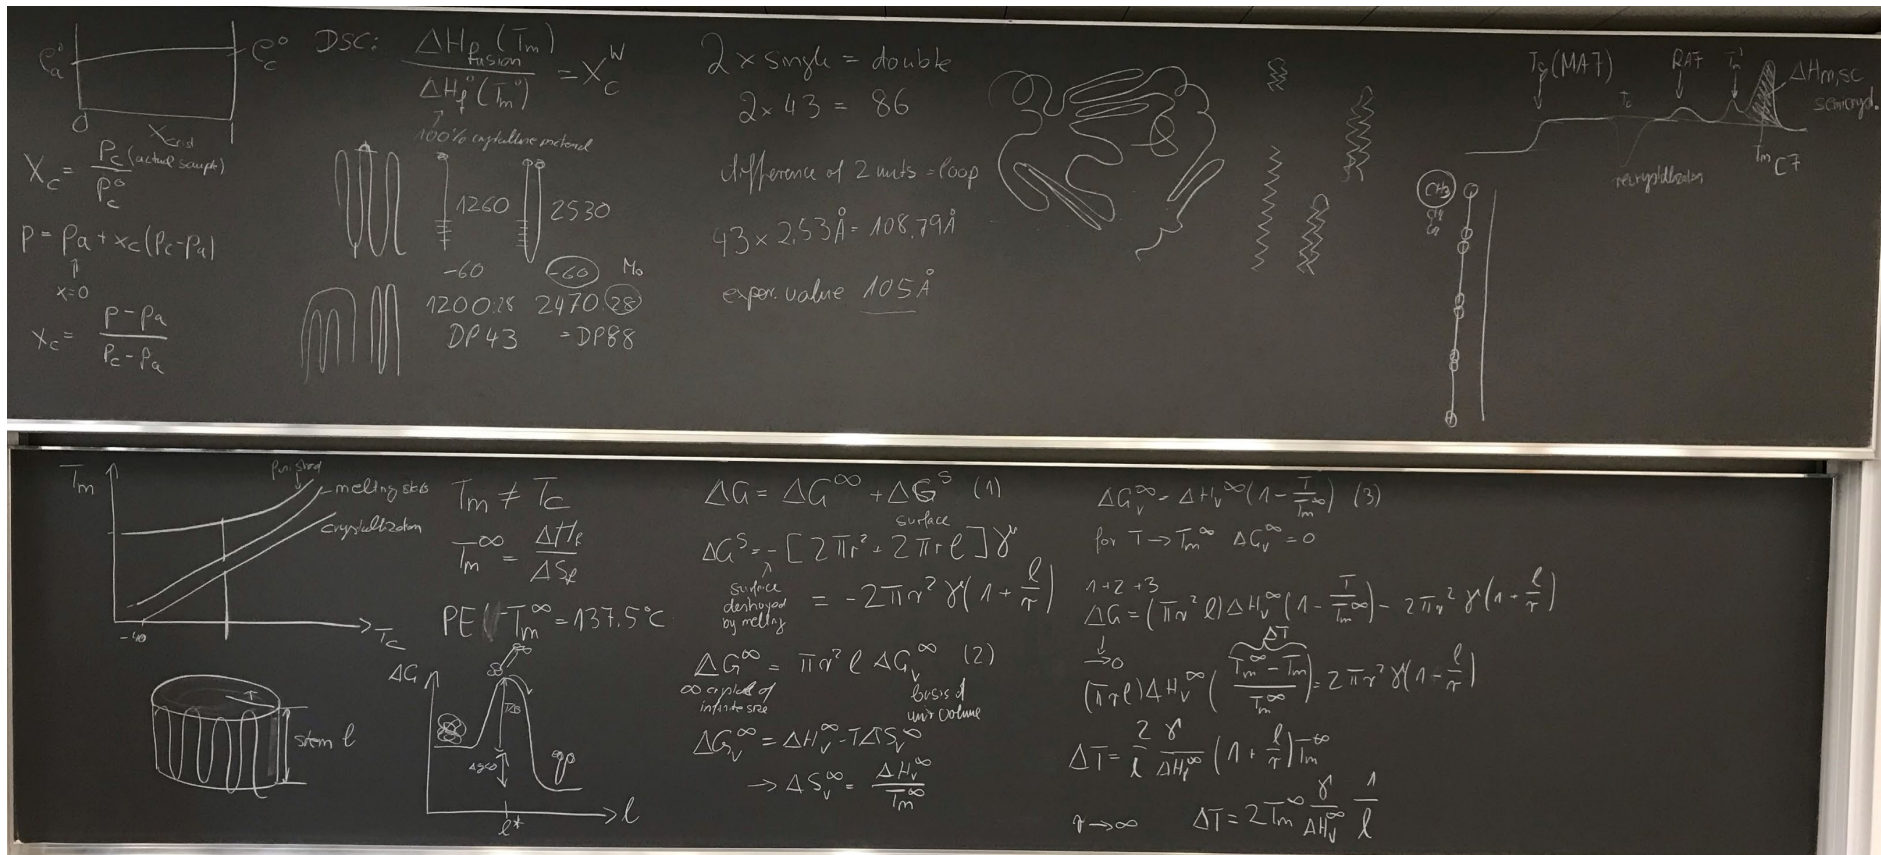 ρₐ° ρ_c°
0 X_crist 1
X_c = ρ_c (actual sample) / ρ_c°
ρ = ρₐ + x_c(ρ_c - ρₐ)
↑
x=0
x_c = (ρ - ρₐ) / (ρ_c - ρₐ)
DSC: ΔH_fusion (T_m) / ΔH_f° (T_m°) = X_c^W
↑
100% crystalline material
1260 2530
-60 -60 M₀
1200:28 2470:28
DP43 =DP88
2 × single = double
2 × 43 = 86
difference of 2 units = loop
43 × 2.53Å = 108.79Å
exper. value 105Å
T_g (MAF) T_c RAF T_m' ΔH_m,sc
semicryst.
recrystallization T_m CF
CH₃
T_m perished
melting
crystallization
-40 T_c
T_m ≠ T_c
T_m^∞ = ΔH_f / ΔS_f
PE T_m^∞ = 137.5°C
stem l
ΔG
TΔS
l* l
ΔG = ΔG^∞ + ΔG^S (1)
surface
ΔG^S = -[2πr² + 2πrl]γ
surface
destroyed
by melting
= -2πr²γ(1 + l/r)
ΔG^∞ = πr²l ΔG_v^∞ (2)
∞ crystal of
infinite size
basis of
unit volume
ΔG_v^∞ = ΔH_v^∞ - TΔS_v^∞
→ ΔS_v^∞ = ΔH_v^∞ / T_m^∞
ΔG_v^∞ = ΔH_v^∞ (1 - T/T_m^∞) (3)
for T → T_m^∞ ΔG_v^∞ = 0
1+2+3
ΔG = (πr²l) ΔH_v^∞ (1 - T/T_m^∞) - 2πr²γ(1 + l/r)
↓
→0 ΔT
(πrl) ΔH_v^∞ ((T_m^∞ - T_m) / T_m^∞) = 2πr²γ(1 - l/r)
ΔT = 2/l γ/ΔH_f^∞ (1 + l/r) T_m^∞
r → ∞ ΔT = 2T_m^∞ γ/ΔH_v^∞ 1/l